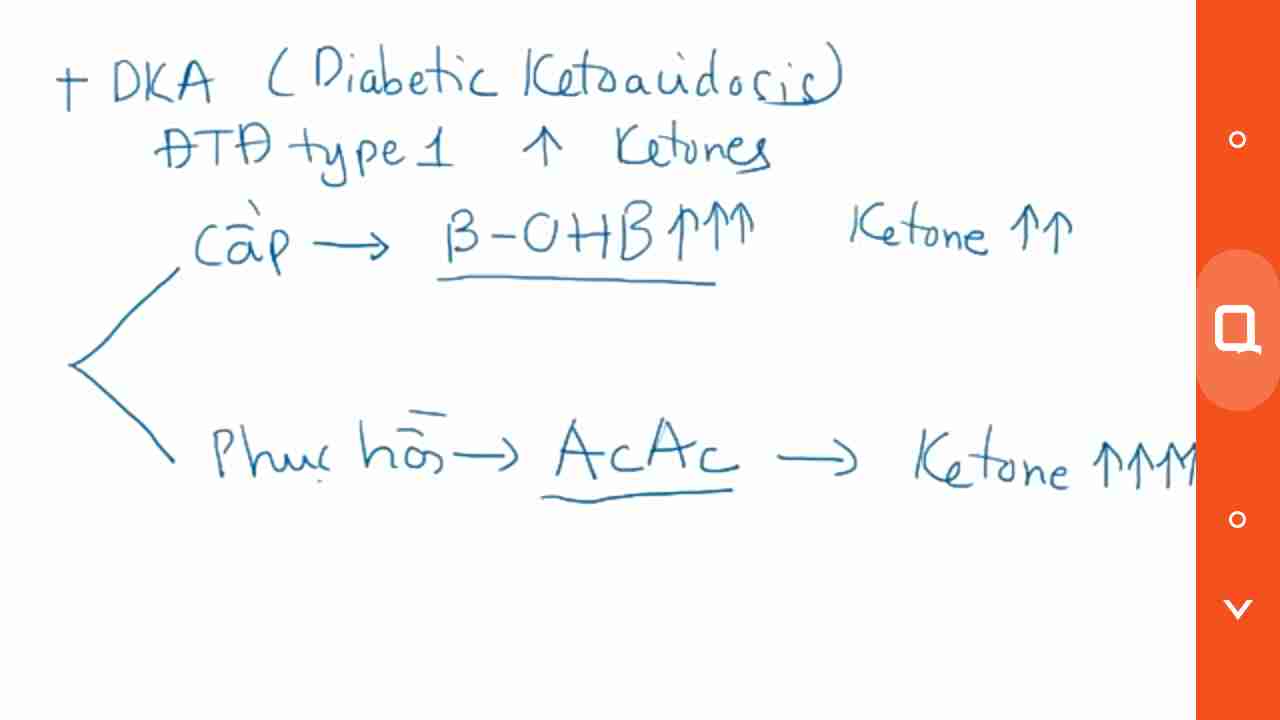 + DKA (Diabetic Ketoacidosis)
ĐTĐ type 1 ↑ Ketones
Cấp → β-OHB ↑↑↑ Ketone ↑↑
Phục hồi → AcAc → Ketone ↑↑↑↑